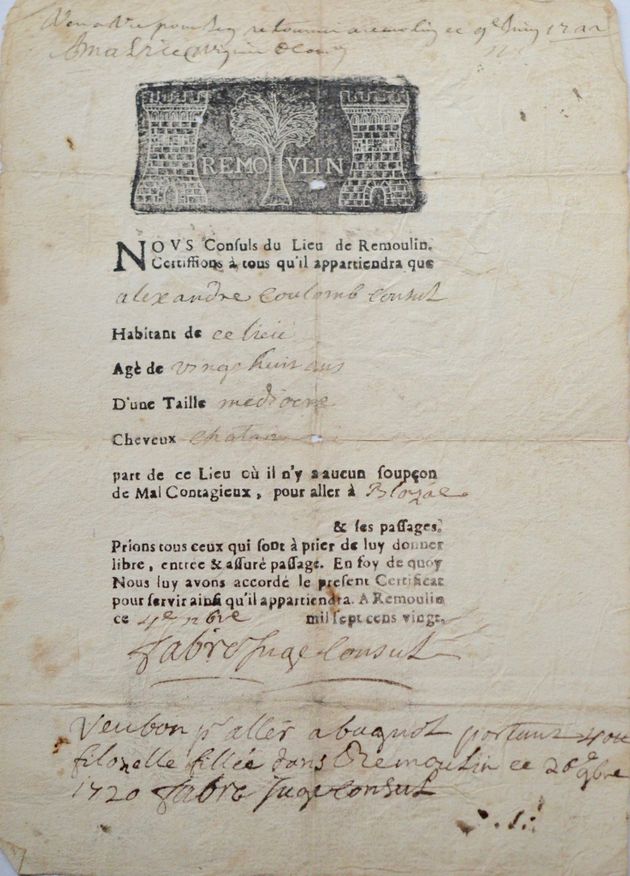 retourner a remoulin ce 9e Juin
REMOVLIN
NOVS Consuls du Lieu de Remoulin.
Certiffions à tous qu'il appartiendra que
alexandre Coulomb Consul
Habitant de ce lieu
Agè de vingt huit ans
D'une Taille mediocre
Cheveux chatan
part de ce Lieu où il n'y a aucun soupçon
de Mal Contagieux, pour aller à Blozac
& ses passages.
Prions tous ceux qui sont à prier de luy donner
libre, entrée & assuré passage. En foy de quoy
Nous luy avons accordé le present Certificat
pour servir ainsi qu'il appartiendra. A Remoulin
ce 4e nbre mil sept cens vingt.
fabre Juge Consul
Veu bon pr aller a portant
filozelle fillée dans Remoulin ce 26e 9bre
1720 fabre Juge Consul